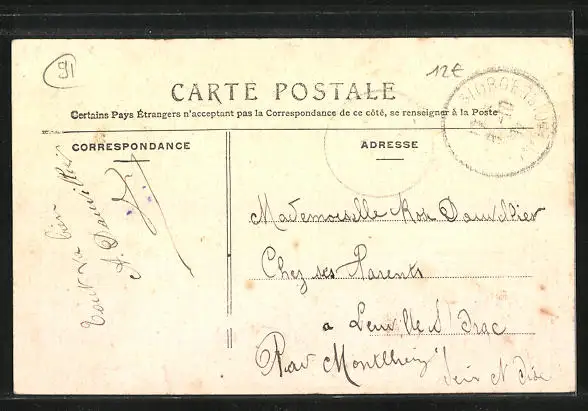 91
12€
CARTE POSTALE
Certains Pays Étrangers n'acceptant pas la Correspondance de ce côté, se renseigner à la Poste
CORRESPONDANCE
Tout va bien
ADRESSE
Mademoiselle
Chez ses Parents
a Leuville S
Par Montlhéry
Seine et Oise